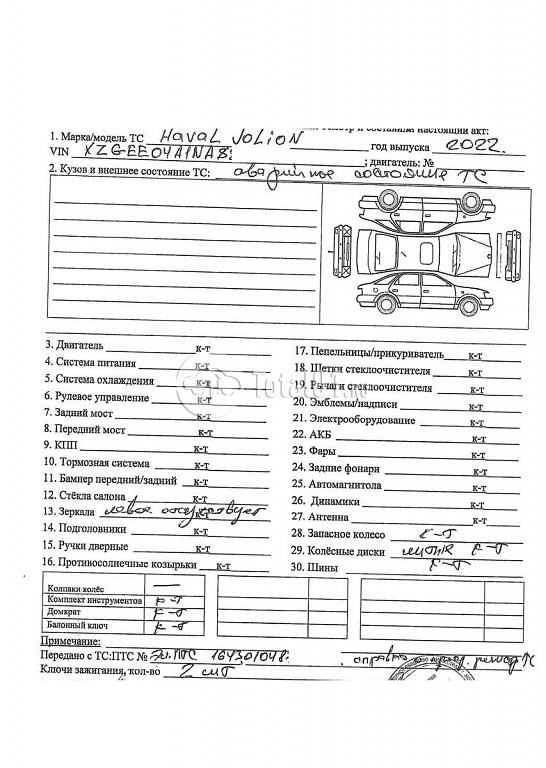 осмотр и составили настоящий акт:
1. Марка/модель ТС HAVAL JOLION год выпуска 2022.
VIN XZGEE04A1NA8 ; двигатель: №
2. Кузов и внешнее состояние ТС: аварийное состояние ТС
3. Двигатель к-т
4. Система питания к-т
5. Система охлаждения к-т
6. Рулевое управление к-т
7. Задний мост к-т
8. Передний мост к-т
9. КПП к-т
10. Тормозная система к-т
11. Бампер передний/задний к-т
12. Стёкла салона к-т
13. Зеркала левое отсутствует к-т
14. Подголовники к-т
15. Ручки дверные к-т
16. Противосолнечные козырьки к-т
17. Пепельницы/прикуриватель к-т
18. Щетки стеклоочистителя к-т
19. Рычаги стеклоочистителя к-т
20. Эмблемы/надписи к-т
21. Электрооборудование к-т
22. АКБ к-т
23. Фары к-т
24. Задние фонари к-т
25. Автомагнитола к-т
26. Динамики к-т
27. Антенна к-т
28. Запасное колесо к-т
29. Колёсные диски литые к-т
30. Шины к-т
Total01.ru
Колпаки колёс —
Комплект инструментов к-т
Домкрат к-т
Балонный ключ к-т
Примечание:
Передано с ТС:ПТС № Эл.ПТС 164301048 справка
Ключи зажигания, кол-во 2 шт